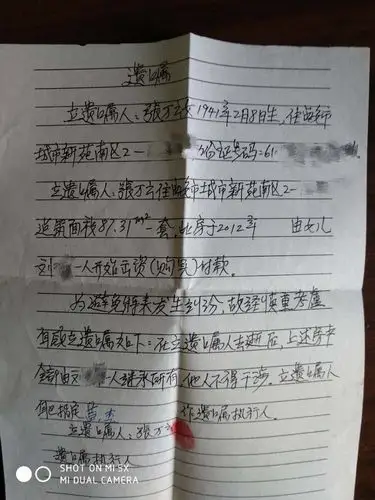 遗嘱
立遗嘱人:张万云女1941年2月8日生,住西安市
城市新苑南区2- 身份证号码:61
立遗嘱人:张万云住西安市城市新苑南区2-
建筑面积81.31m²一套,此房于2012年 由女儿
刘 一人开始出资(购买)付款。
为避免将来发生纠纷,故经慎重考虑
立遗嘱如下:在立遗嘱人去逝后,上述房产
全部由刘 一人继承所有,他人不得干涉。立遗嘱人
指定 作遗嘱执行人。
立遗嘱人:张万
遗嘱执行人
SHOT ON MI 5X
MI DUAL CAMERA